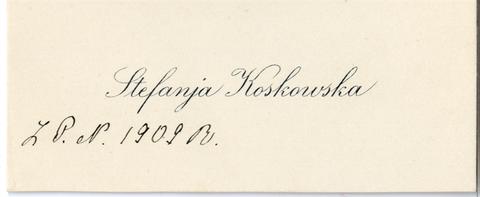 Stefanja Koskowska
Z P. N. 1909 R.